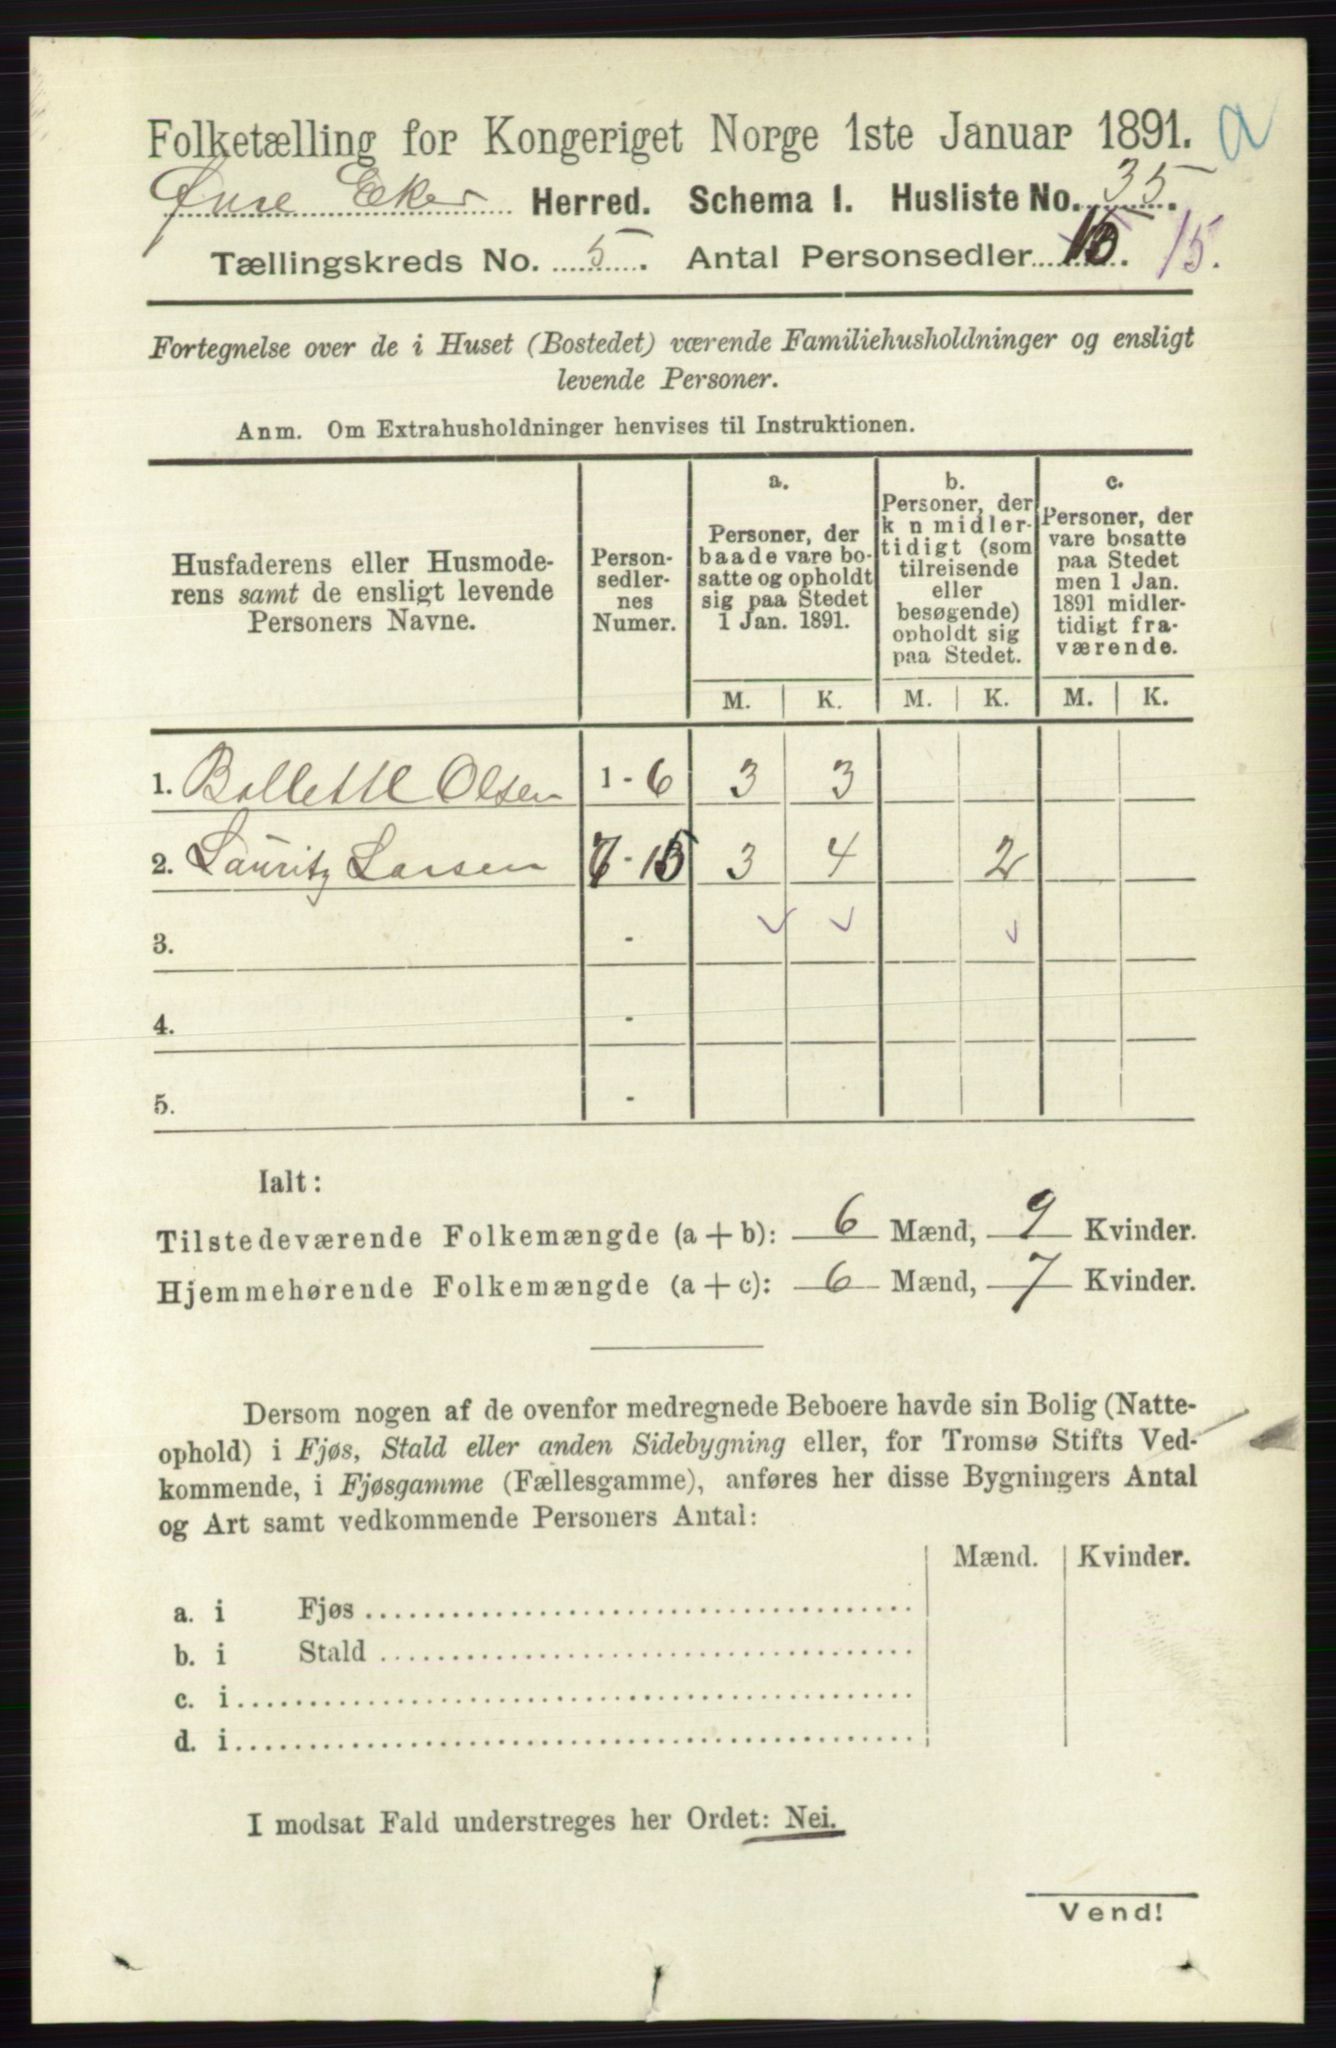 Folketælling for Kongeriget Norge 1ste Januar 1891. a
Øvre Eker Herred. Schema 1. Husliste No. 35.
Tællingskreds No. 5. Antal Personsedler 15. 15.
Fortegnelse over de i Huset (Bostedet) værende Familiehusholdninger og ensligt
levende Personer.
Anm. Om Extrahusholdninger henvises til Instruktionen.
Husfaderens eller Husmode-
rens samt de ensligt levende
Personers Navne.
Person-
sedler-
nes
Numer.
a.
Personer, der
baade vare bo-
satte og opholdt
sig paa Stedet
1 Jan. 1891.
b.
Personer, der
k n midler-
tidigt (som
tilreisende
eller
besøgende)
opholdt sig
paa Stedet.
c.
Personer, der
vare bosatte
paa Stedet
men 1 Jan.
1891 midler-
tidigt fra-
værende.
M. K. M. K. M. K.
1. Bollette Olsen 1 - 6 3 3
2. Lauritz Larsen 7 - 15 3 4 2
3. -
4. -
5. -
Ialt:
Tilstedeværende Folkemængde (a + b): 6 Mænd, 9 Kvinder.
Hjemmehørende Folkemængde (a + c): 6 Mænd, 7 Kvinder.
Dersom nogen af de ovenfor medregnede Beboere havde sin Bolig (Natte-
ophold) i Fjøs, Stald eller anden Sidebygning eller, for Tromsø Stifts Ved-
kommende, i Fjøsgamme (Fællesgamme), anføres her disse Bygningers Antal
og Art samt vedkommende Personers Antal:
Mænd. Kvinder.
a. i Fjøs
b. i Stald
c. i
d. i
I modsat Fald understreges her Ordet: Nei.
Vend!